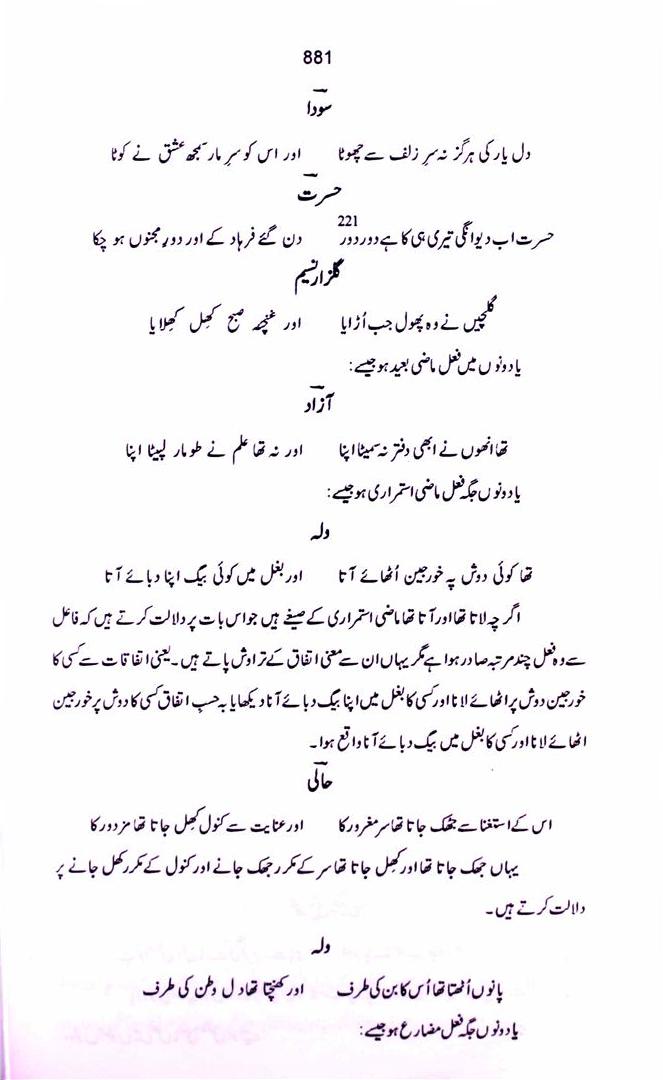 881
سودا
دل یار کی ہرگز نہ سرِ زلف سے چھوٹا اور اس کو سرِ مار سمجھ عشق نے کوٹا
حسرت
حسرت اب دیوانگی تیری ہی کا ہے دور دور 221 دن گئے فرہاد کے اور دورِ مجنوں ہو چکا
گلزارِ نسیم
گلچیں نے وہ پھول جب اُڑایا اور غنچہ صبح کھِل کھِلایا
یا دونوں میں فعل ماضی بعید ہو جیسے:
آزاد
تھا انھوں نے ابھی دفتر نہ سمیٹا اپنا اور نہ تھا علم نے طومار لپیٹا اپنا
یا دونوں جگہ فعل ماضی استمراری ہو جیسے:
ولہ
تھا کوئی دوش پہ خورجین اُٹھائے آتا اور بغل میں کوئی بیگ اپنا دبائے آتا
اگرچہ لاتا تھا اور آتا تھا ماضی استمراری کے صیغے ہیں جو اس بات پر دلالت کرتے ہیں کہ فاعل
سے وہ فعل چند مرتبہ صادر ہوا ہے مگر یہاں ان سے معنی اتفاق کے تراوش پاتے ہیں۔ یعنی اتفاقات سے کسی کا
خورجین دوش پر اٹھائے لانا اور کسی کا بغل میں اپنا بیگ دبائے آنا دیکھا یا بہ حسبِ اتفاق کسی کا دوش پر خورجین
اٹھائے لانا اور کسی کا بغل میں بیگ دبائے آنا واقع ہوا۔
حالی
اس کے استغنا سے جھک جاتا تھا سر مغرور کا اور عنایت سے کنول کھِل جاتا تھا مزدور کا
یہاں جھک جاتا تھا اور کھِل جاتا تھا سر کے مکرر جھک جانے اور کنول کے مکرر کھل جانے پر
دلالت کرتے ہیں۔
ولہ
پانوں اُٹھتا تھا اُس کا بن کی طرف اور کھنچتا تھا دل وطن کی طرف
یا دونوں جگہ فعل مضارع ہو جیسے: